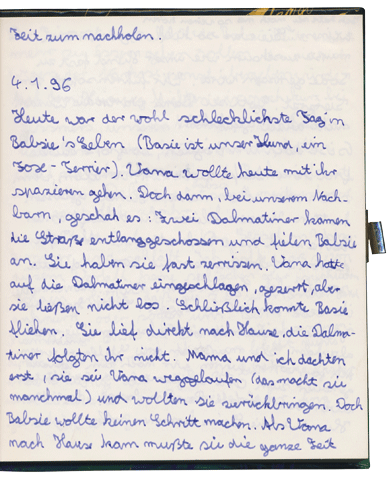 Zeit zum nachholen.
4.1.96
Heute war der wohl schlechlichste Tag in
Babsie's Leben (Basie ist unser Hund, ein
Foxe-Terrier). Vana wollte heute mit ihr
spazieren gehen. Doch dann, bei unserem Nach-
barn, geschah es: Zwei Dalmatiner kamen
die Straße entlanggeschossen und fielen Babsie
an. Sie haben sie fast zerrissen. Vana hatte
auf die Dalmatiner eingeschlagen, gezerrt, aber
sie ließen nicht los. Schlißlich konnte Basie
fliehen. Sie lief direkt nach Hause, die Dalma-
tiner folgten ihr nicht. Mama und ich dachten
erst, sie sei Vana weggelaufen (das macht sie
manchmal) und wollten sie zurückbringen. Doch
Babsie wollte keinen Schritt machen. Als Vana
nach Hause kam mußte sie die ganze Zeit